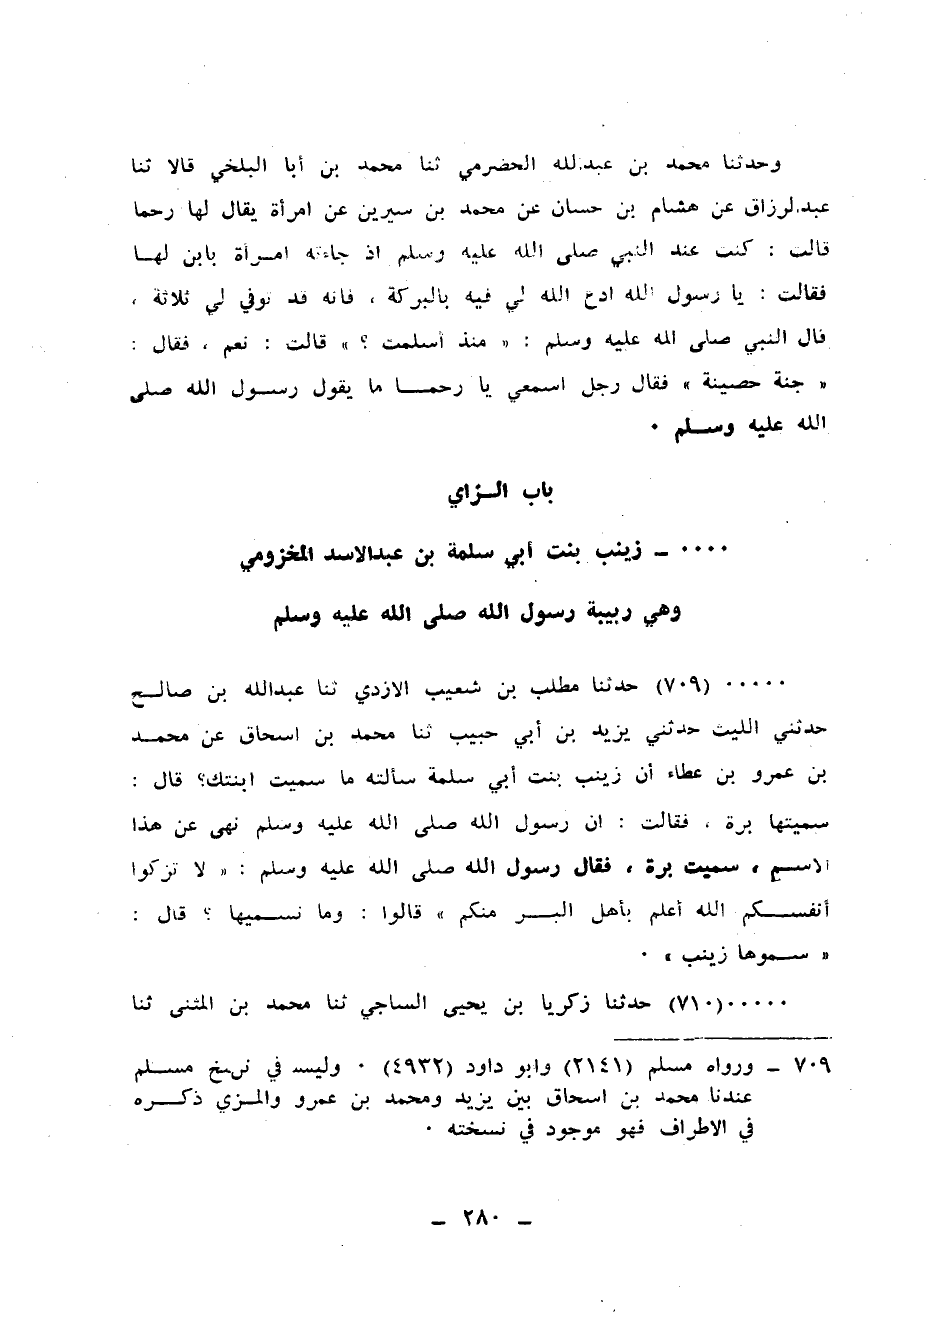 وحدثنا محمد بن عبدالله الحضرمي ثنا محمد بن أبا البلخي قالا ثنا
عبدالرزاق عن هشام بن حسان عن محمد بن سيرين عن امرأة يقال لها رحما
قالت : كنت عند النبي صلى الله عليه وسلم اذ جاءته امـرأة بابن لهـا
فقالت : يا رسول الله ادع الله لي فيه بالبركة ، فانه قد توفي لي ثلاثة ،
قال النبي صلى الله عليه وسلم : « منذ أسلمت ؟ » قالت : نعم ، فقال :
« جنة حصينة » فقال رجل اسمعي يا رحمـا ما يقول رسـول الله صلى
الله عليه وسـلم ٠
باب الـزاي
٠٠٠٠ ـ زينب بنت أبي سلمة بن عبدالاسد المخزومي
وهي ربيبة رسول الله صلى الله عليه وسلم
٠٠٠٠٠ (٧٠٩) حدثنا مطلب بن شعيب الازدي ثنا عبدالله بن صالـح
حدثني الليث حدثني يزيد بن أبي حبيب ثنا محمد بن اسحاق عن محمـد
بن عمرو بن عطاء أن زينب بنت أبي سلمة سألته ما سميت ابنتك؟ قال :
سميتها برة ، فقالت : ان رسول الله صلى الله عليه وسلم نهى عن هذا
الاسـم ، سميت برة ، فقال رسول الله صلى الله عليه وسلم : « لا تزكوا
أنفسـكم الله أعلم بأهل البـر منكم » قالوا : وما نسـميها ؟ قال :
« سـموها زينب » ٠
٠٠٠٠٠(٧١٠) حدثنا زكريا بن يحيى الساجي ثنا محمد بن المثنى ثنا
٧٠٩ ـ ورواه مسلم (٢١٤١) وابو داود (٤٩٣٢) ٠ وليس في نسخ مسـلم
عندنا محمد بن اسحاق بين يزيد ومحمد بن عمرو والمـزي ذكـره
في الاطراف فهو موجود في نسخته ٠
ـ ٢٨٠ ـ